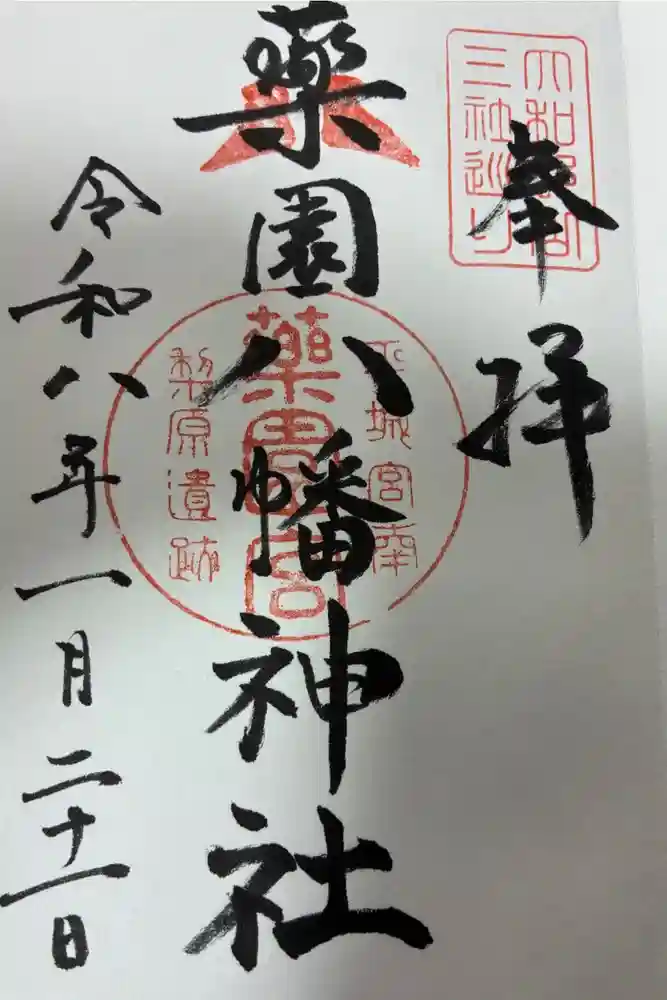 奉拝
大和郡山
三社巡り
藥園八幡神社
平城宮南
藥園宮
梨原遺跡
令和八年一月二十一日